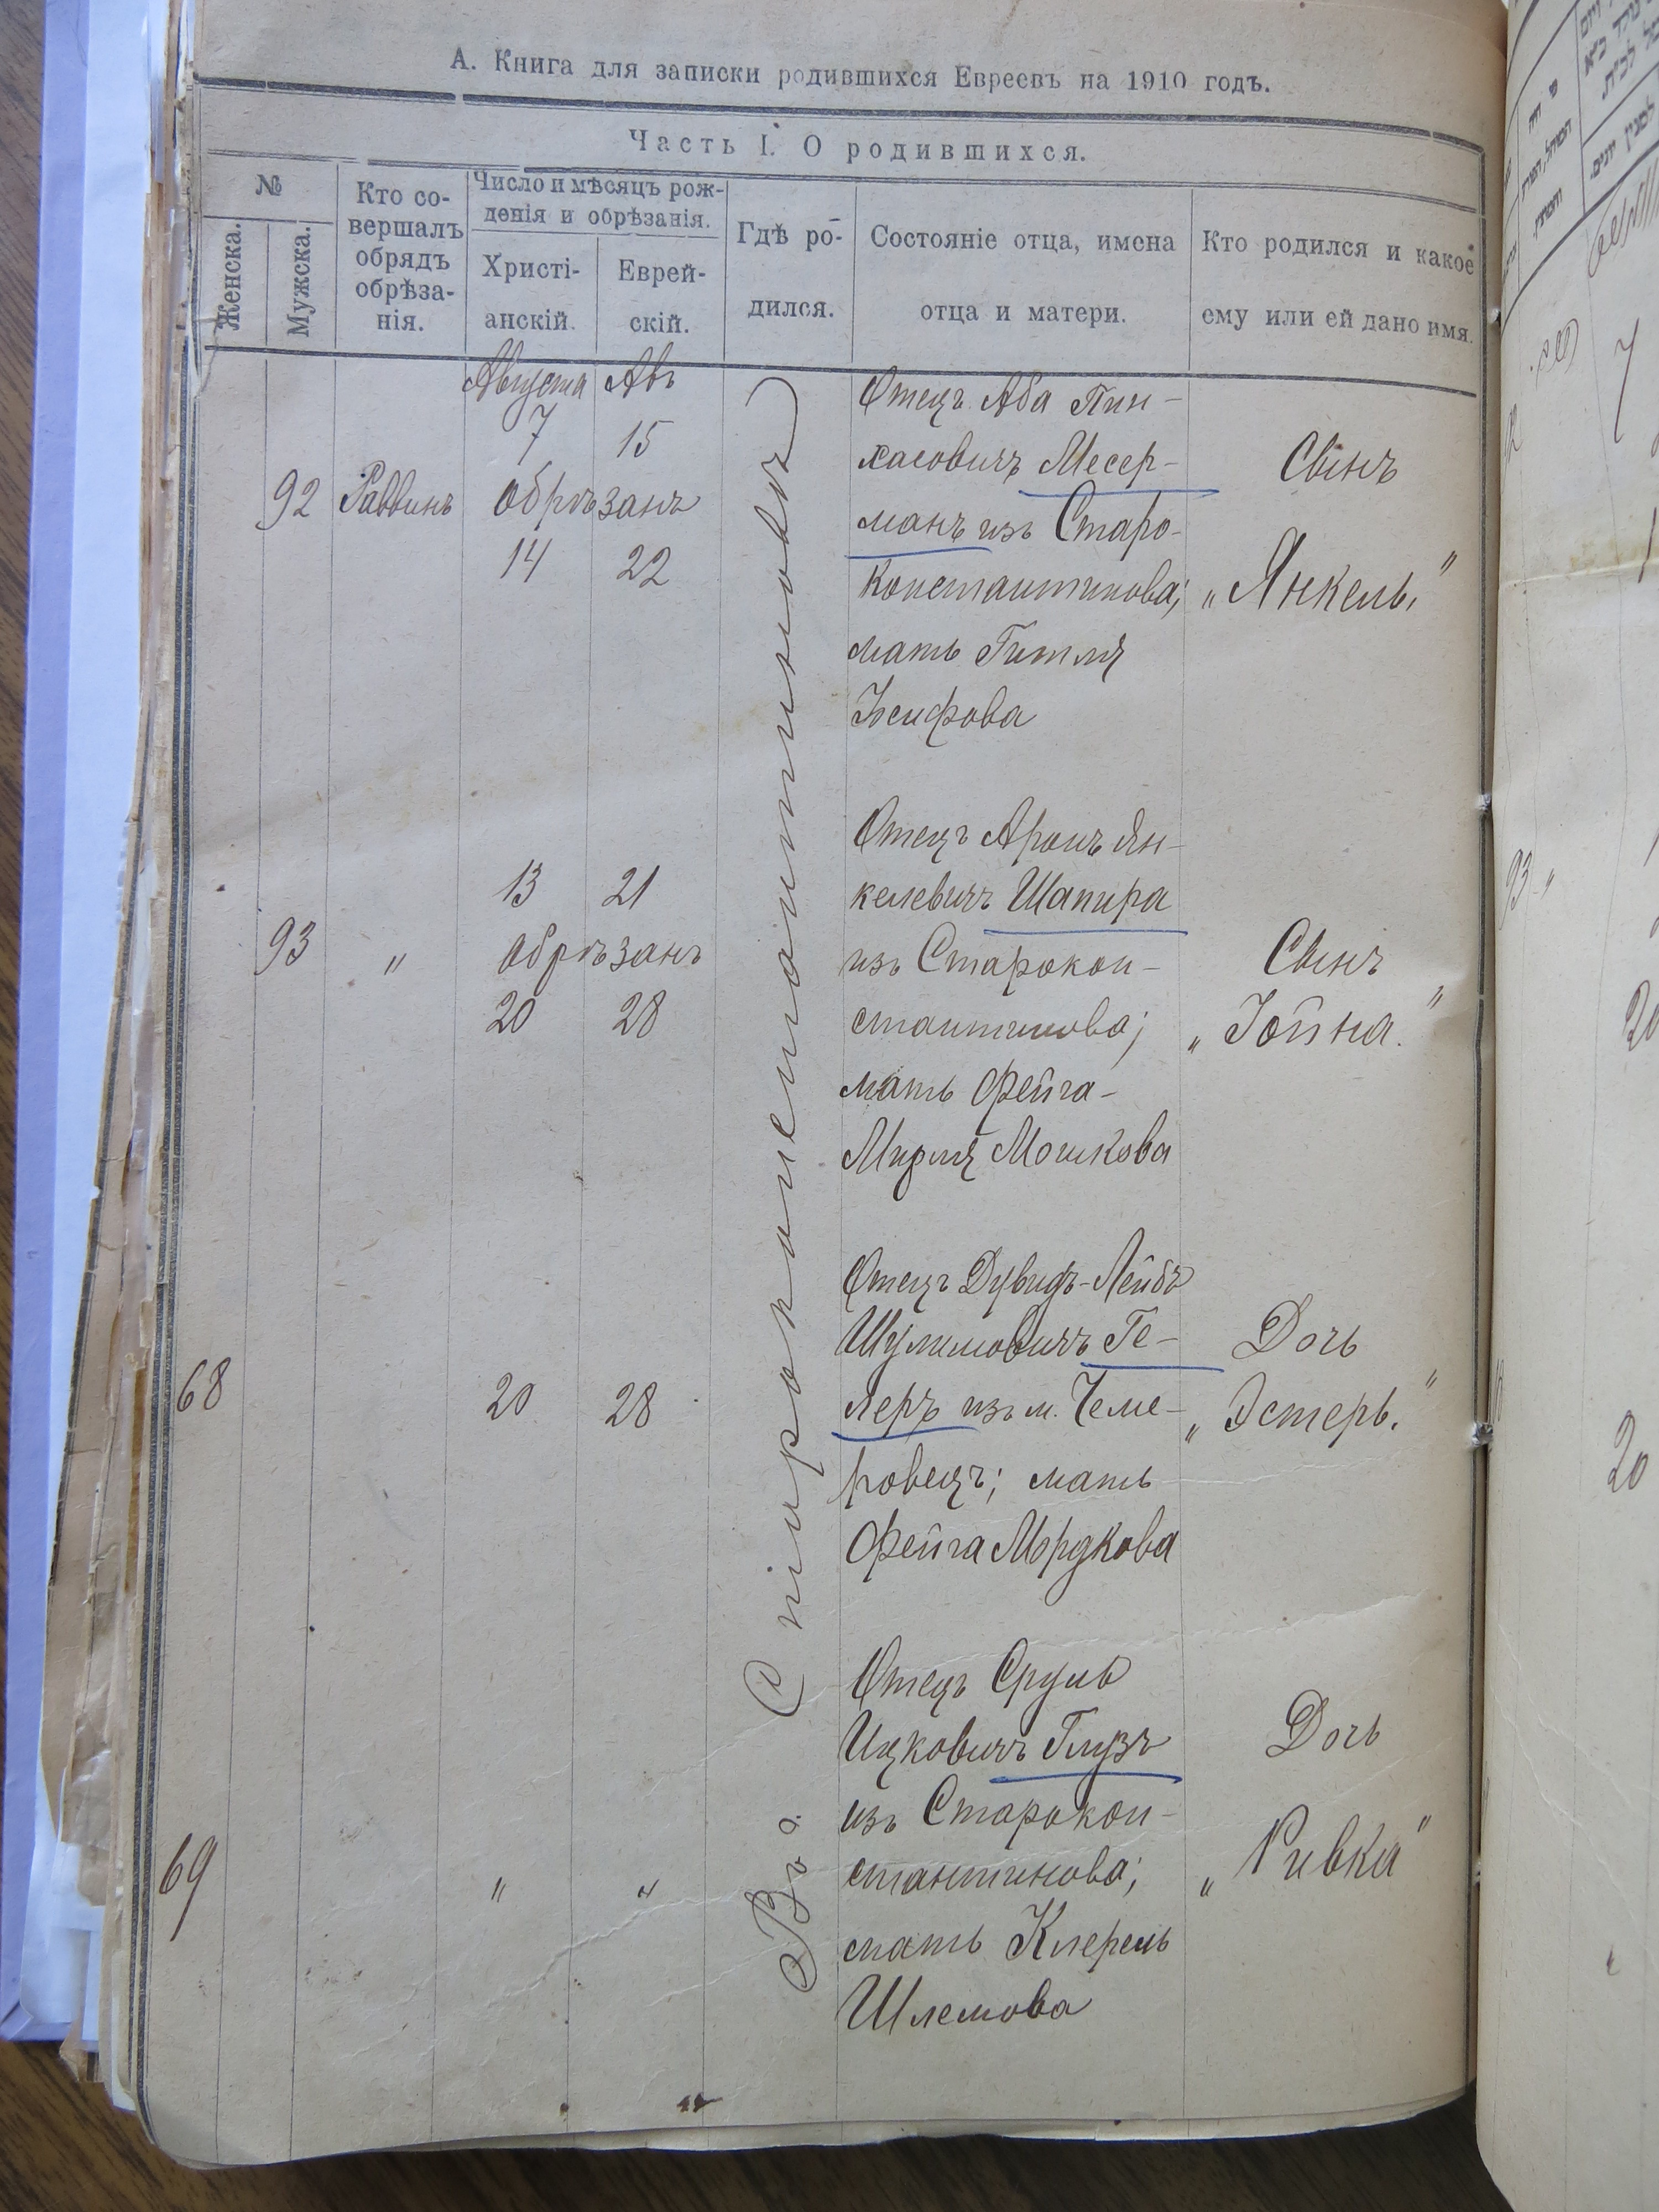 А. Книга для записки родившихся Евреевъ на 1910 годъ.
Часть I. О родившихся.
№
Женска.
Мужска.
Кто со-
вершалъ
обрядъ
обрѣза-
нія.
Число и мѣсяцъ рож-
денія и обрѣзанія.
Христі-
анскій.
Еврей-
скій.
Гдѣ ро-
дился.
Состояніе отца, имена
отца и матери.
Кто родился и какое
ему или ей дано имя.
Въ г. Староконстантиновѣ
Августа Авъ
7 15
92 Раввинъ Обрѣзанъ
14 22
Отецъ Аба Пин-
хасовичъ Месер-
манъ изъ Старо-
константинова;
мать Гитля
Іосифова
Сынъ
„Янкель."
13 21
93 " Обрѣзанъ
20 28
Отецъ Аронъ Ян-
келевичъ Шапира
изъ Старокон-
стантинова;
мать Фейга-
Мирля Мошкова
Сынъ
„Іойна."
68 20 28
Отецъ Дувидъ-Лейбъ
Шулимовичъ Ге-
леръ изъ м. Чеме-
ровецъ; мать
Фейга Мордкова
Дочь
„Эстеръ."
69 " "
Отецъ Сруль
Ицковичъ Глузъ
изъ Старокон-
стантинова;
мать
Шлемова
Дочь
„Ривка"
93 "
20
20